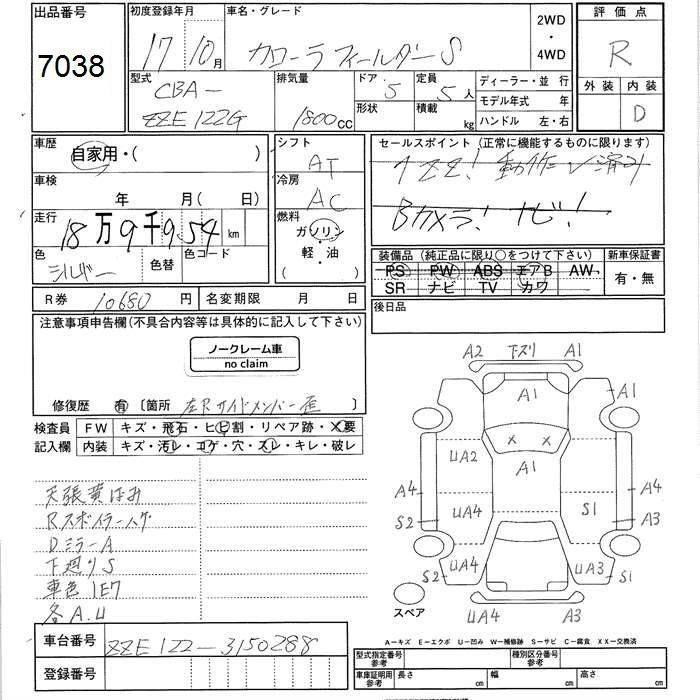 出品番号
7038
初度登録年月
17年 10月
車名・グレード
カローラ フィールダー S
2WD
・
4WD
評価点
R
外装 内装
D
型式
CBA-
ZZE122G
排気量
1800cc
ドア 5
形状
定員
5人
積載
kg
ディーラー・並行
モデル年式 年
ハンドル 左・右
車歴
自家用・( )
シフト
AT
セールスポイント (正常に機能するものに限ります)
1ZZ! 動作 済み
Bカメラ! ナビ!
車検
年 月( 日)
冷房
AC
走行
18万9千954km
燃料
ガソリン
・
軽・油
色
シルバー
色替
色コード
装備品 (純正品に限り○をつけて下さい)
PS PW ABS エアB AW
SR ナビ TV カワ
新車保証書
有・無
R券 10680円
名変期限 月 日
後日品
注意事項申告欄(不具合内容等は具体的に記入して下さい)
ノークレーム車
no claim
修復歴 有 〔箇所 左Rサイドメンバー歪 〕
検査員
記入欄
FW キズ・飛石・ヒビ割・リペア跡・X要
内装 キズ・汚レ・コゲ・穴・スレ・キレ・破レ
天張黄ばみ
Rスポイラーハゲ
DミラーA
下廻りS
車色1E7
各A.U
A2 下ズリ A1
A1
A1
UA2
A1
A4
A4
S2
UA4
S1
A3
S2
UA4
UA3
S1
スペア
UA4
A4
A-キズ E-エクボ U-凹み W-補修跡 S-サビ C-腐食 XX-交換済
車台番号
ZZE122-3150288
登録番号
型式指定番号
参考
種別区分番号
参考
車庫証明用
参考
長さ cm
幅 cm
高さ cm